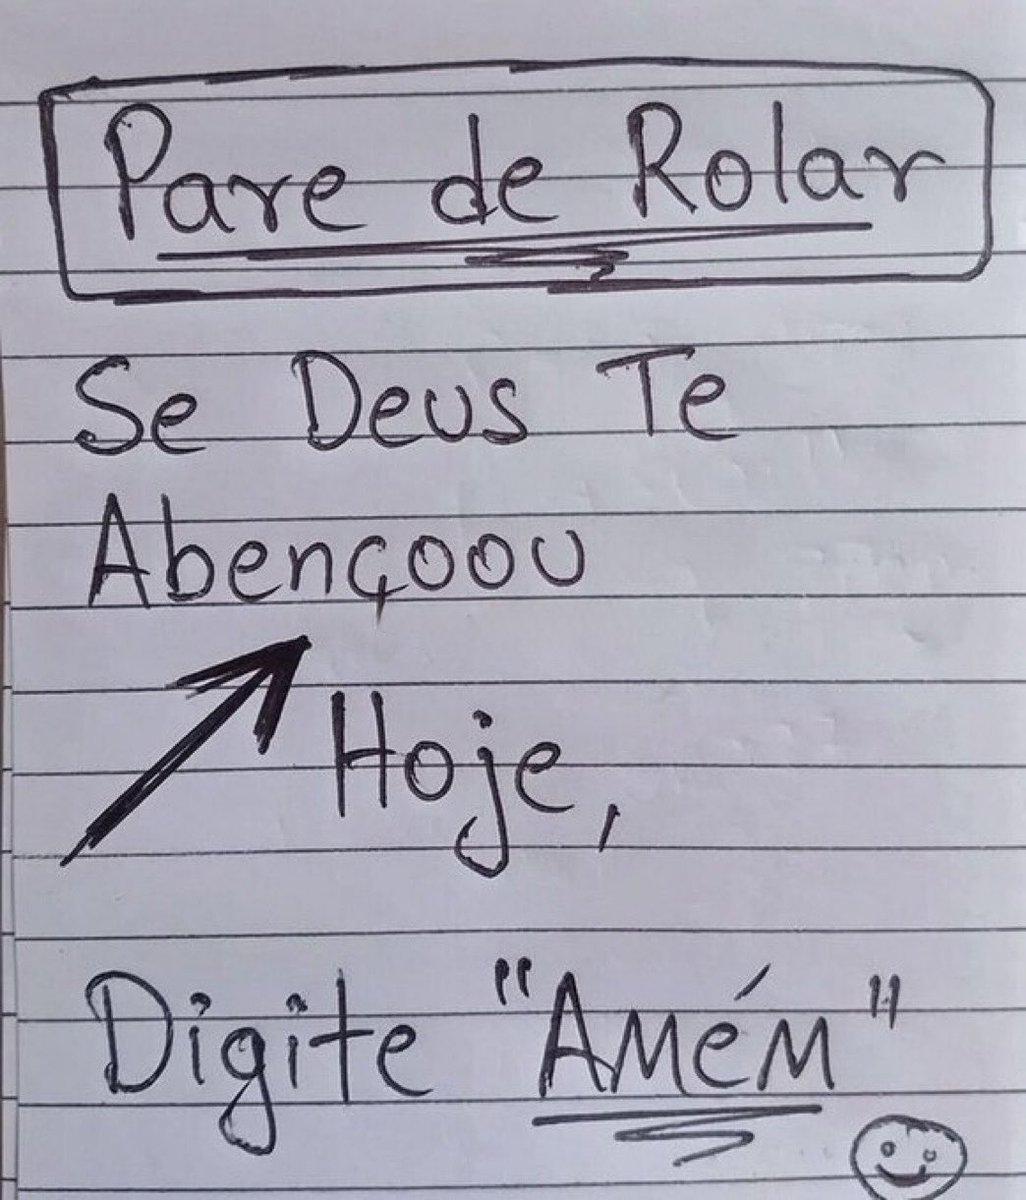 Pare de Rolar
Se Deus Te
Abençoou
Hoje,
Digite "Amém"